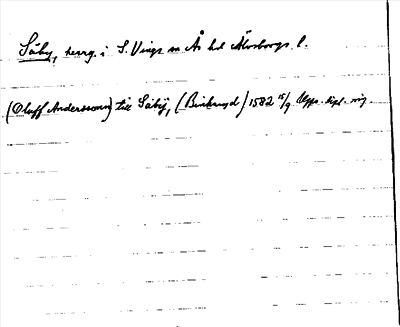 Säby, herrg. i S. Vings sn Ås hd Älvsborgs l.
(Oluff Andersson) till Säby, (Bickeryd) 1582 15/9 Upps. dipl. reg.